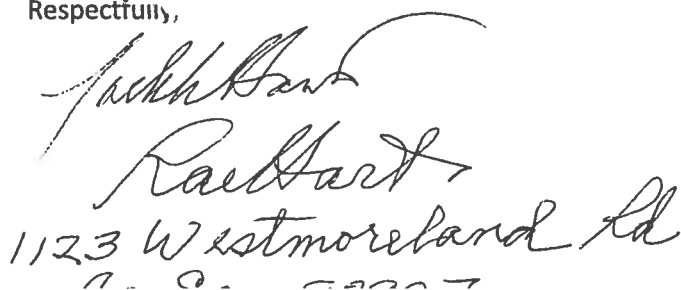 Respectfully,
Hart
Rae Hart
1123 Westmoreland Rd